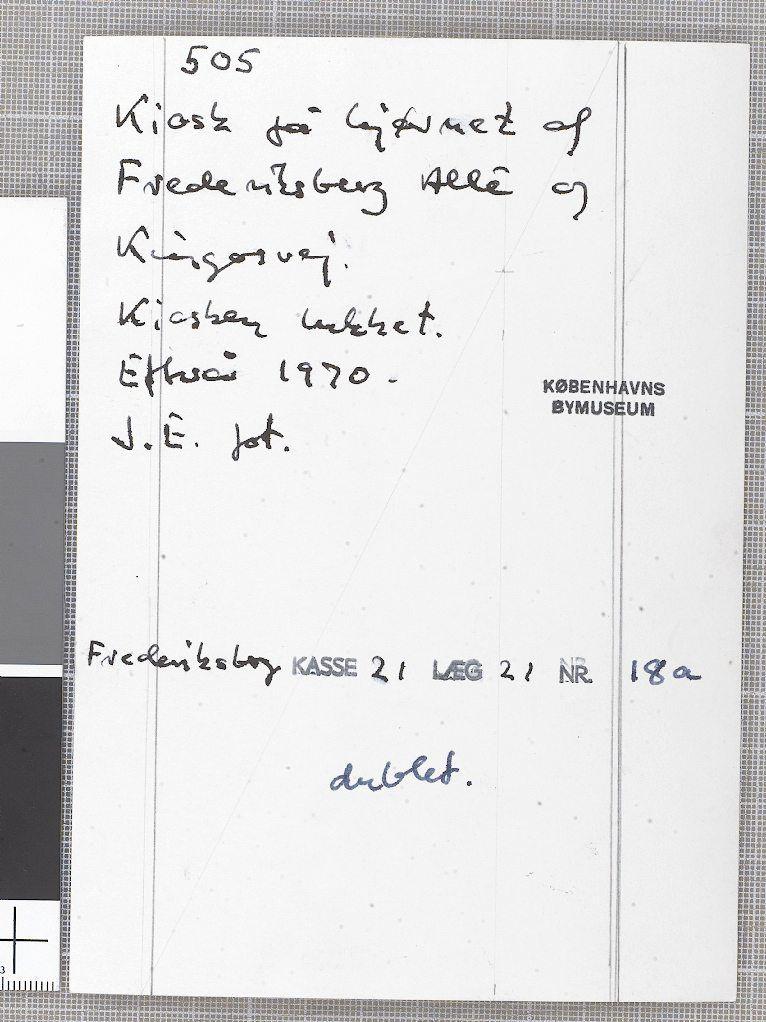 505
Kiosk på hjørnet af
Frederiksberg Allé og
Kingosvej.
Kiosken lukket.
Efterår 1970.
J.E. fot.
KØBENHAVNS
BYMUSEUM
Frederiksberg KASSE 21 LÆG 21 NR. 18a
dublet.